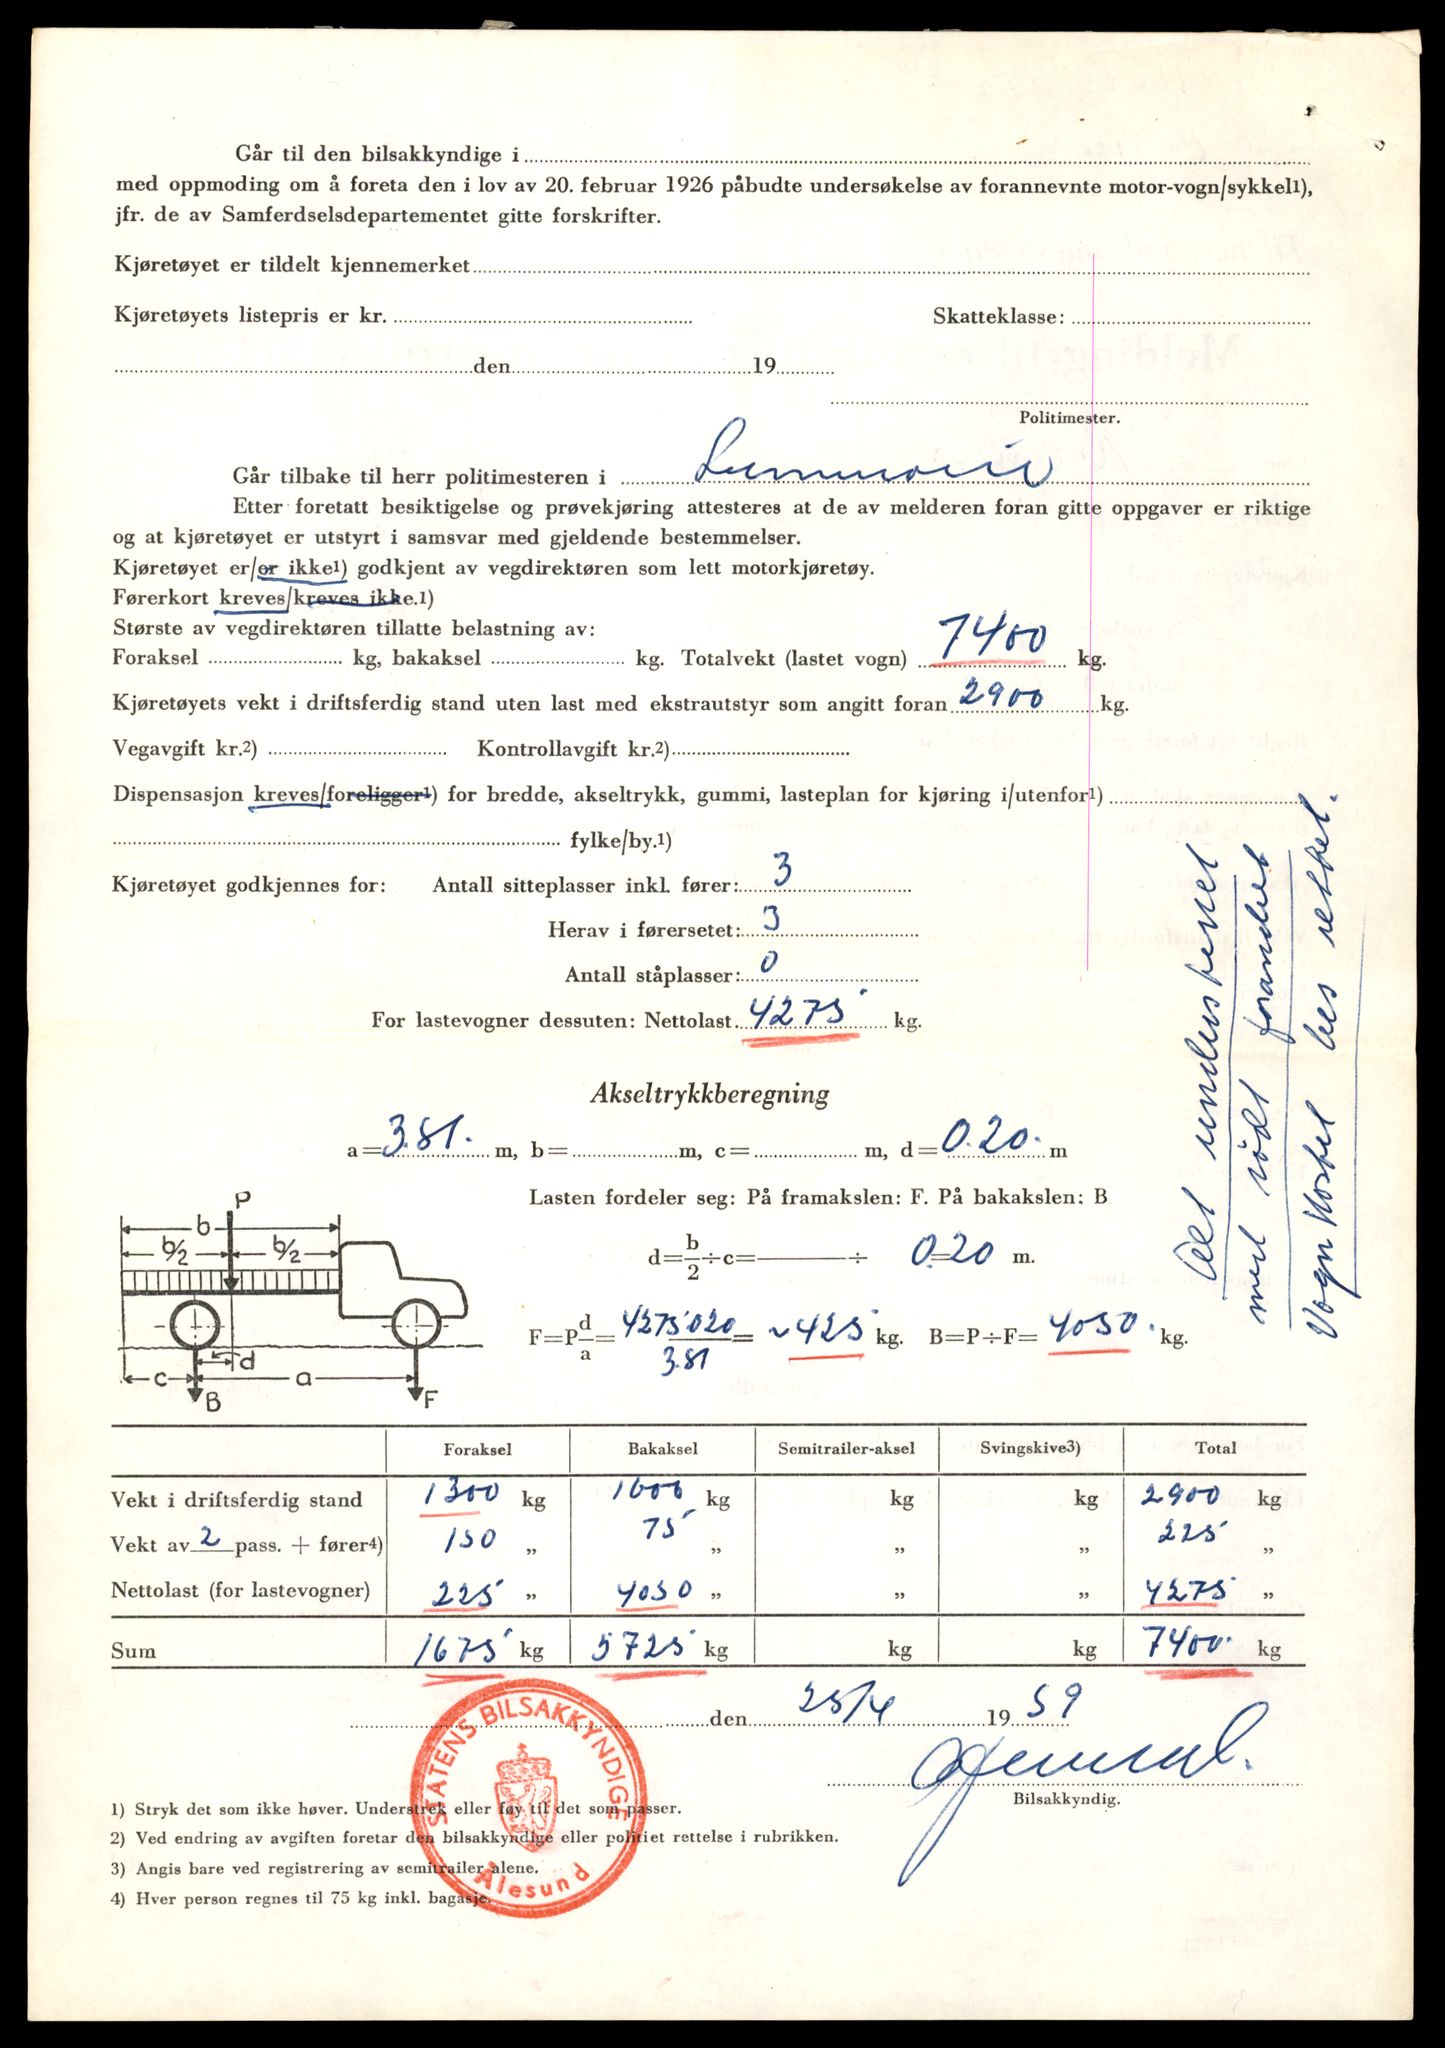 Går til den bilsakkyndige i
med oppmoding om å foreta den i lov av 20. februar 1926 påbudte undersøkelse av forannevnte motor-vogn/sykkel1),
jfr. de av Samferdselsdepartementet gitte forskrifter.
Kjøretøyet er tildelt kjennemerket
Kjøretøyets listepris er kr. Skatteklasse:
den 19
Politimester.
Går tilbake til herr politimesteren i
Etter foretatt besiktigelse og prøvekjøring attesteres at de av melderen foran gitte oppgaver er riktige
og at kjøretøyet er utstyrt i samsvar med gjeldende bestemmelser.
Kjøretøyet er/er ikke1) godkjent av vegdirektøren som lett motorkjøretøy.
Førerkort kreves/kreves ikke.1)
Største av vegdirektøren tillatte belastning av:
Foraksel kg, bakaksel kg. Totalvekt (lastet vogn) 7400 kg.
Kjøretøyets vekt i driftsferdig stand uten last med ekstrautstyr som angitt foran 2900 kg.
Vegavgift kr.2) Kontrollavgift kr.2)
Dispensasjon kreves/foreligger1) for bredde, akseltrykk, gummi, lasteplan for kjøring i/utenfor1)
fylke/by.1)
Kjøretøyet godkjennes for: Antall sitteplasser inkl. fører: 3
Herav i førersetet: 3
Antall ståplasser: 0
For lastevogner dessuten: Nettolast 4275 kg.
Alt understreket
med rødt forandret
Vogn Kortet bes rettet.
Akseltrykkberegning
a= 3.81. m, b= m, c= m, d= 0.20. m
Lasten fordeler seg: På framakslen: F. På bakakslen: B
d=b/2÷c= ÷ 0.20 m.
F=P d/a= 4275·020/3.81 = ~425 kg. B=P÷F= 4050. kg.
P
b
b/2 b/2
d
c a
B F
Foraksel Bakaksel Semitrailer-aksel Svingskive3) Total
Vekt i driftsferdig stand 1300 kg 1600 kg kg kg 2900 kg
Vekt av 2 pass. + fører4) 150 „ 75 „ „ „ 225 „
Nettolast (for lastevogner) 225 „ 4050 „ „ „ 4275 „
Sum 1675 kg 5725 kg kg kg 7400. kg
den 25/4 19 59
Bilsakkyndig.
STATENS BILSAKKYNDIGE
Ålesund
1) Stryk det som ikke høver. Understrek eller føy til det som passer.
2) Ved endring av avgiften foretar den bilsakkyndige eller politiet rettelse i rubrikken.
3) Angis bare ved registrering av semitrailer alene.
4) Hver person regnes til 75 kg inkl. bagasje.